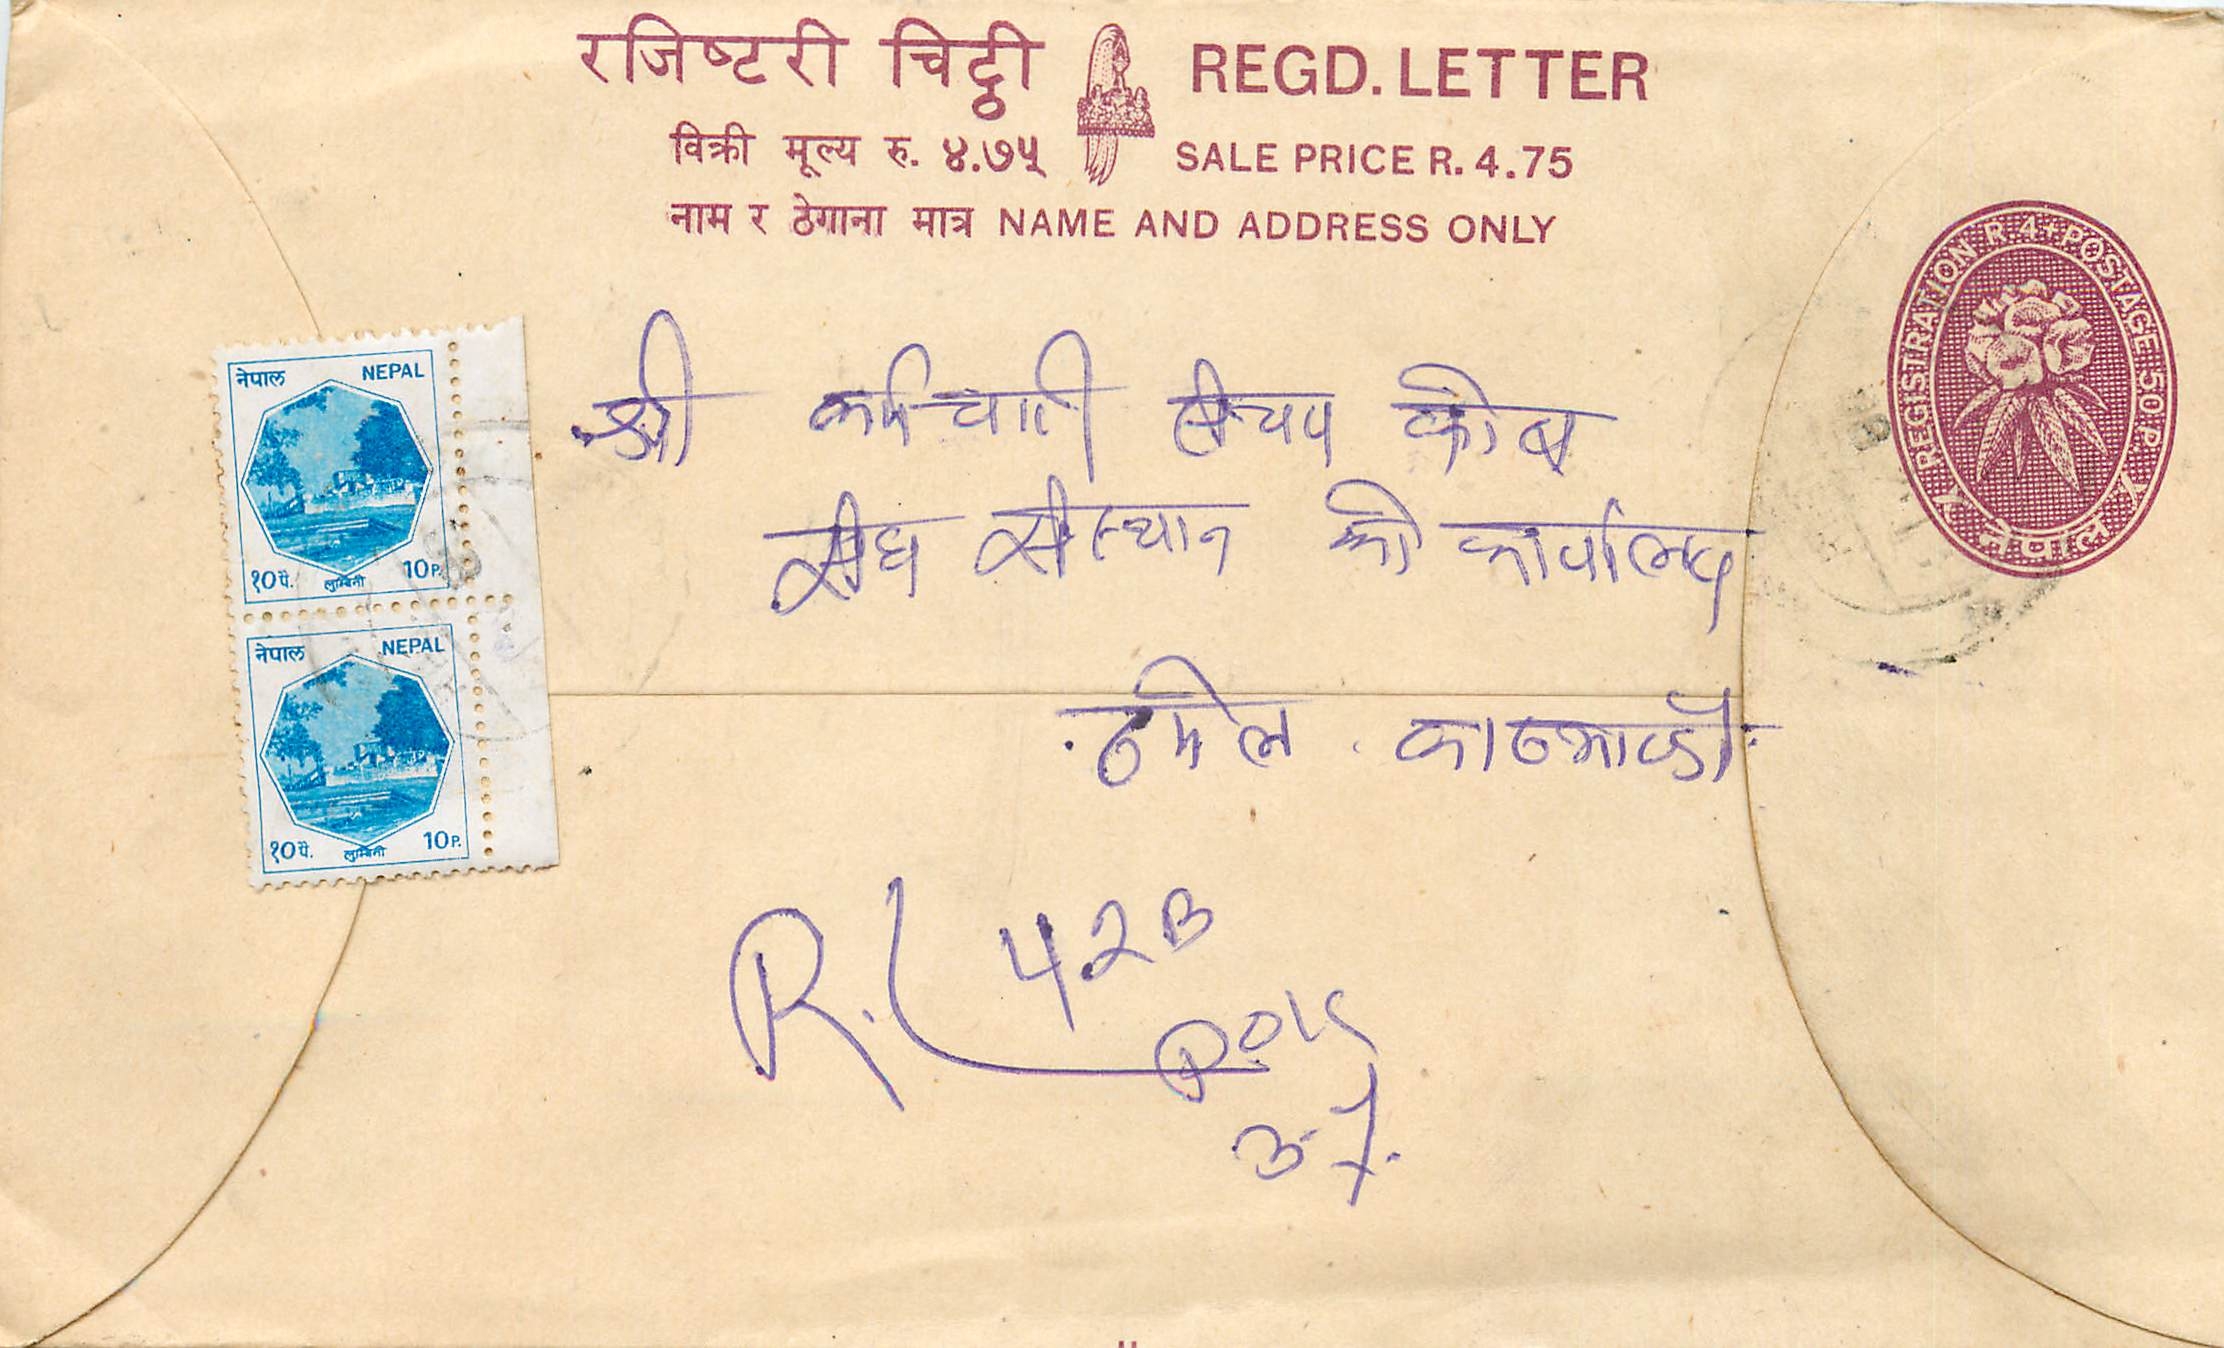 रजिष्टरी चिट्ठी REGD. LETTER
विक्री मूल्य रु. ४.७५ SALE PRICE R. 4.75
नाम र ठेगाना मात्र NAME AND ADDRESS ONLY
REGISTRATION R 4+POSTAGE.50 P.
नेपाल
नेपाल NEPAL
१० पै. लुम्बिनी 10 P.
नेपाल NEPAL
१० पै. लुम्बिनी 10 P.
श्री कर्मचारी संचय कोष
संस्थान को कार्यालय
ठमेल काठमाण्डौ
R.L 42